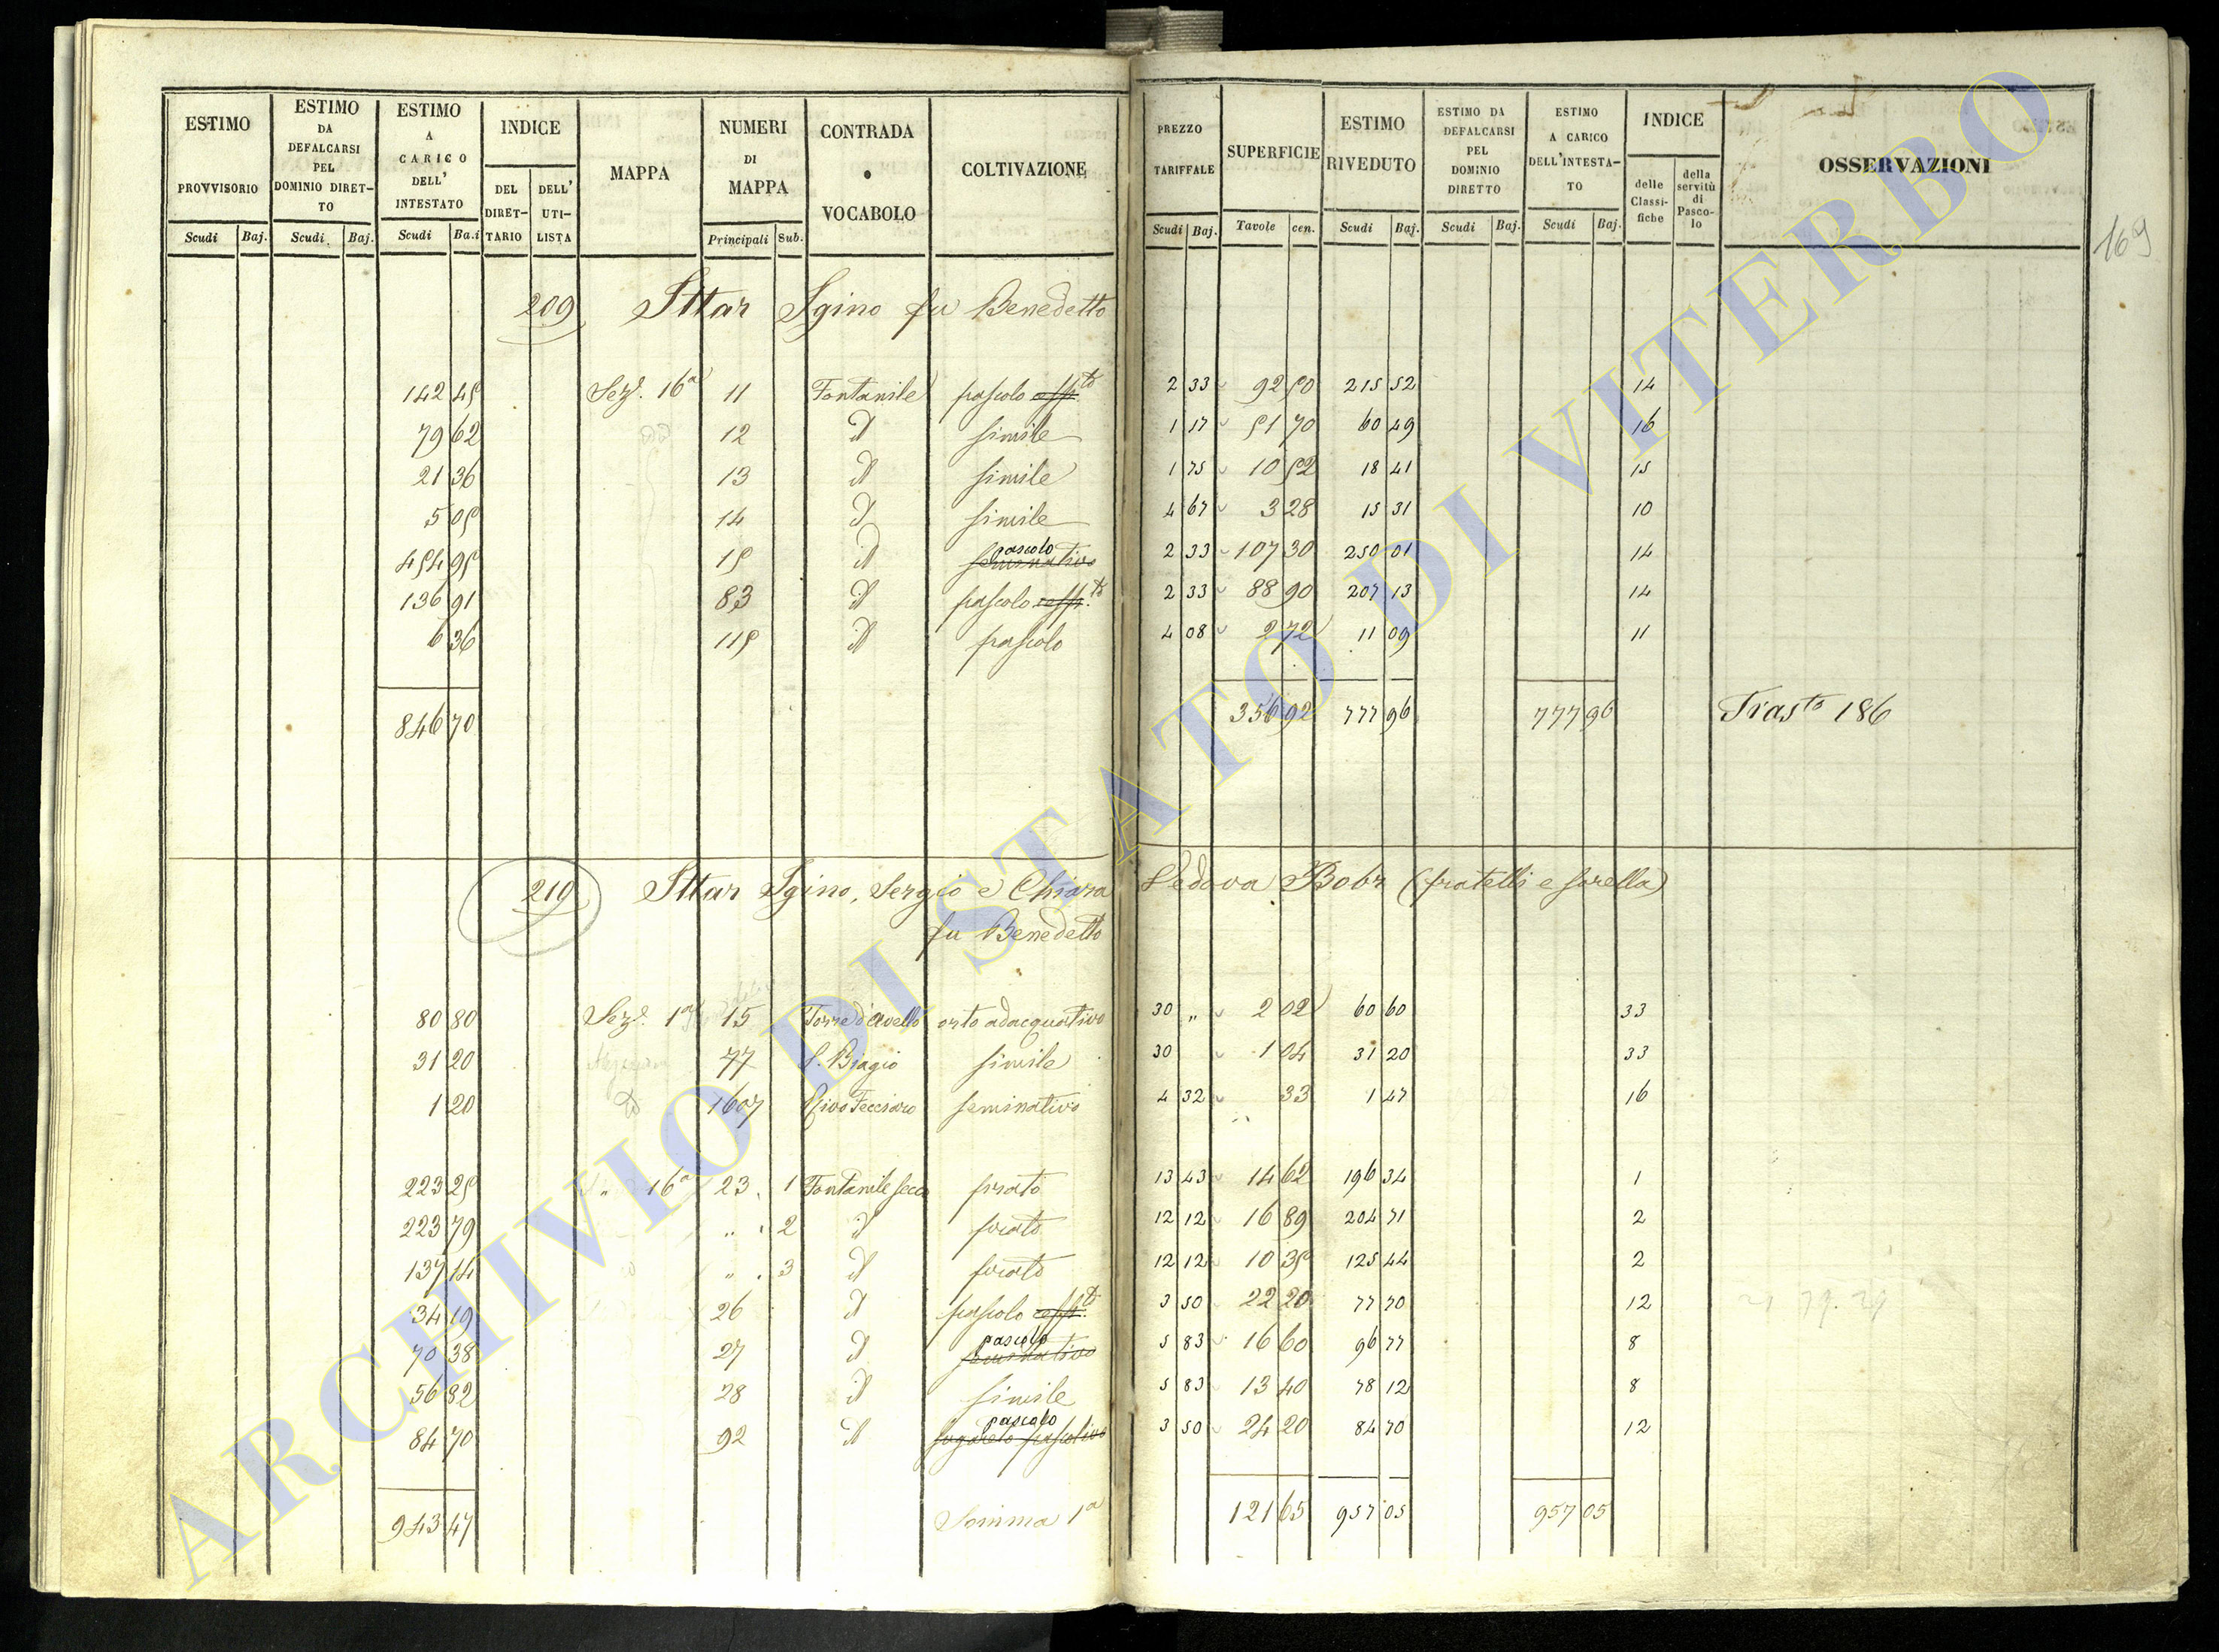 ESTIMO PROVVISORIO Scudi Baj.
ESTIMO DA DEFALCARSI PEL DOMINIO DIRETTO Scudi Baj.
ESTIMO A CARICO DELL' INTESTATO Scudi Ba.i
INDICE DEL DIRETTARIO DELL' UTILISTA
MAPPA
NUMERI DI MAPPA Principali Sub.
CONTRADA o VOCABOLO
COLTIVAZIONE
PREZZO TARIFFALE Scudi Baj.
SUPERFICIE Tavole cen.
ESTIMO RIVEDUTO Scudi Baj.
ESTIMO DA DEFALCARSI PEL DOMINIO DIRETTO Scudi Baj.
ESTIMO A CARICO DELL'INTESTATO Scudi Baj.
INDICE delle Classifiche della servitù di Pascolo
OSSERVAZIONI
169
209 Ittar Igino fu Benedetto
142 45 Sez.e 16a 11 Fontanile pascolo 2 33 92 50 215 52 14
79 62 12 d simile 1 17 51 70 60 49 16
21 36 13 d simile 1 75 10 52 18 41 15
5 05 14 d simile 4 67 3 28 15 31 10
454 95 15 d seminativo pascolo 2 33 107 30 250 01 14
136 91 83 d pascolo 2 33 88 90 207 13 14
6 36 115 d pascolo 4 08 2 72 11 09 11
846 70 356 92 777 96 777 96 Trasto 186
210 Ittar Igino, Sergio e Chiara Vedova Bobr (fratelli e sorella)
fu Benedetto
80 80 Sez.e 1a 15 Torre d'Avello orto adacquativo 30 „ 2 02 60 60 33
31 20 77 S. Biagio simile 30 1 04 31 20 33
1 20 1607 seminativo 4 32 33 1 47 16
223 25 „ 16a 23 1 Fontanile secco prato 13 43 14 62 196 34 1
223 79 „ 2 d prato 12 12 16 89 204 71 2
137 14 „ 3 d prato 12 12 10 35 125 44 2
34 19 26 d pascolo 3 50 22 20 77 70 12
70 38 27 d seminativo pascolo 5 83 16 60 96 77 8
56 82 28 d simile 5 83 13 40 78 12 8
84 70 92 d pascolo 3 50 24 20 84 70 12
943 47 Somma 1a 121 65 957 05 957 05
ARCHIVIO DI STATO DI VITERBO